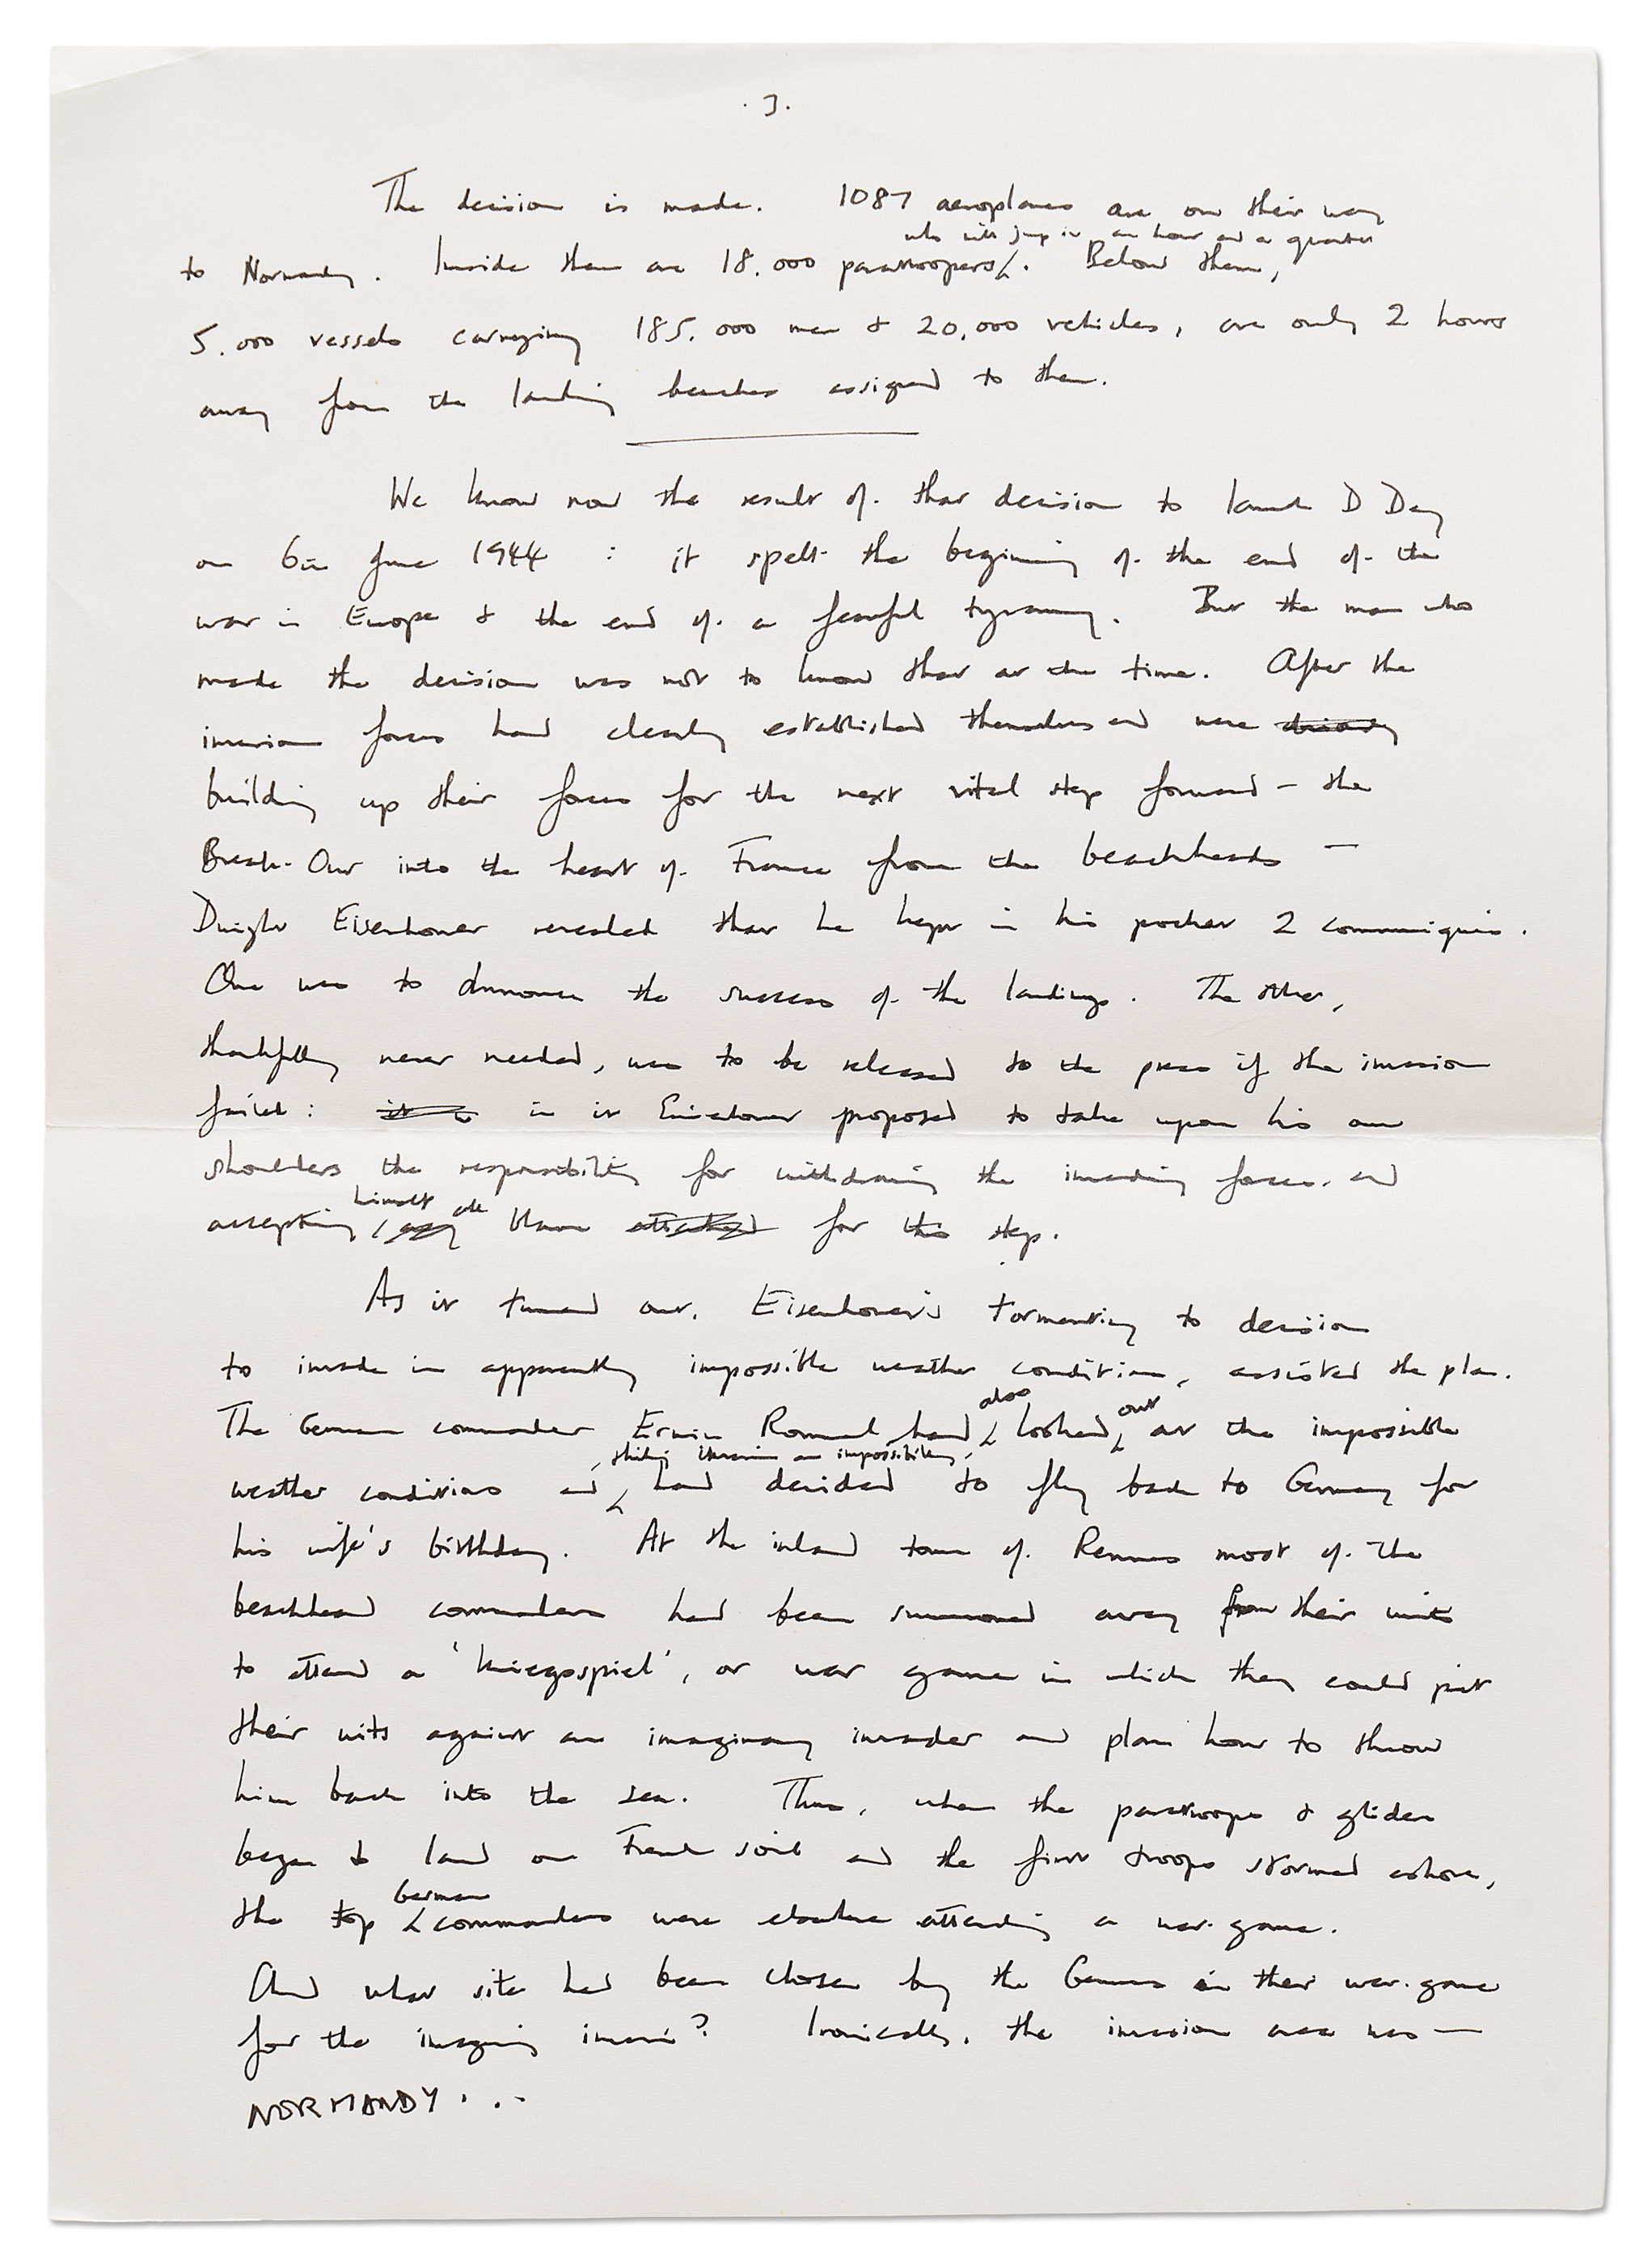 . 3 .
The decision is made. 1087 aeroplanes are on their way
who will jump in an hour and a quarter
to Normandy. Inside them are 18.000 paratroopers. Below them,
5.000 vessels carrying 185.000 men & 20,000 vehicles, are only 2 hours
away from the landing beaches assigned to them.
We know now the result of that decision to launch D Day
on 6th June 1944 : it spelt the beginning of the end of the
war in Europe & the end of a fearful tyranny. But the man who
made the decision was not to know that at the time. After the
invasion forces had clearly established themselves and were
building up their forces for the next vital step forward - the
Break-Out into the heart of France from the beachheads -
Dwight Eisenhower revealed that he kept in his pocket 2 communiqués.
One was to announce the success of the landings. The other,
thankfully never needed, was to be released to the press if the invasion
failed : it in it Eisenhower proposed to take upon his own
shoulders the responsibility for withdrawing the invading forces. and
himself all
accepting any blame attached for this step.
As it turned out, Eisenhower's tormenting to decision
to invade in apparently impossible weather conditions, assisted the plan.
also out
The German commander Erwin Rommel had looked at the impossible
thinking invasion an impossibility,
weather conditions and had decided to fly back to Germany for
his wife's birthday. At the inland town of Rennes most of the
beachhead commanders had been summoned away from their units
to attend a 'kriegsspiel', or war game in which they could pit
their wits against an imaginary invader and plan how to throw
him back into the sea. Thus, when the paratroops & gliders
began to land on French soil and the first troops stormed ashore,
German
the top commanders were elsewhere attending a war-game.
And what site had been chosen by the Germans in their war-game
for the imaginary invasion? Ironically, the invasion area was -
NORMANDY . . .